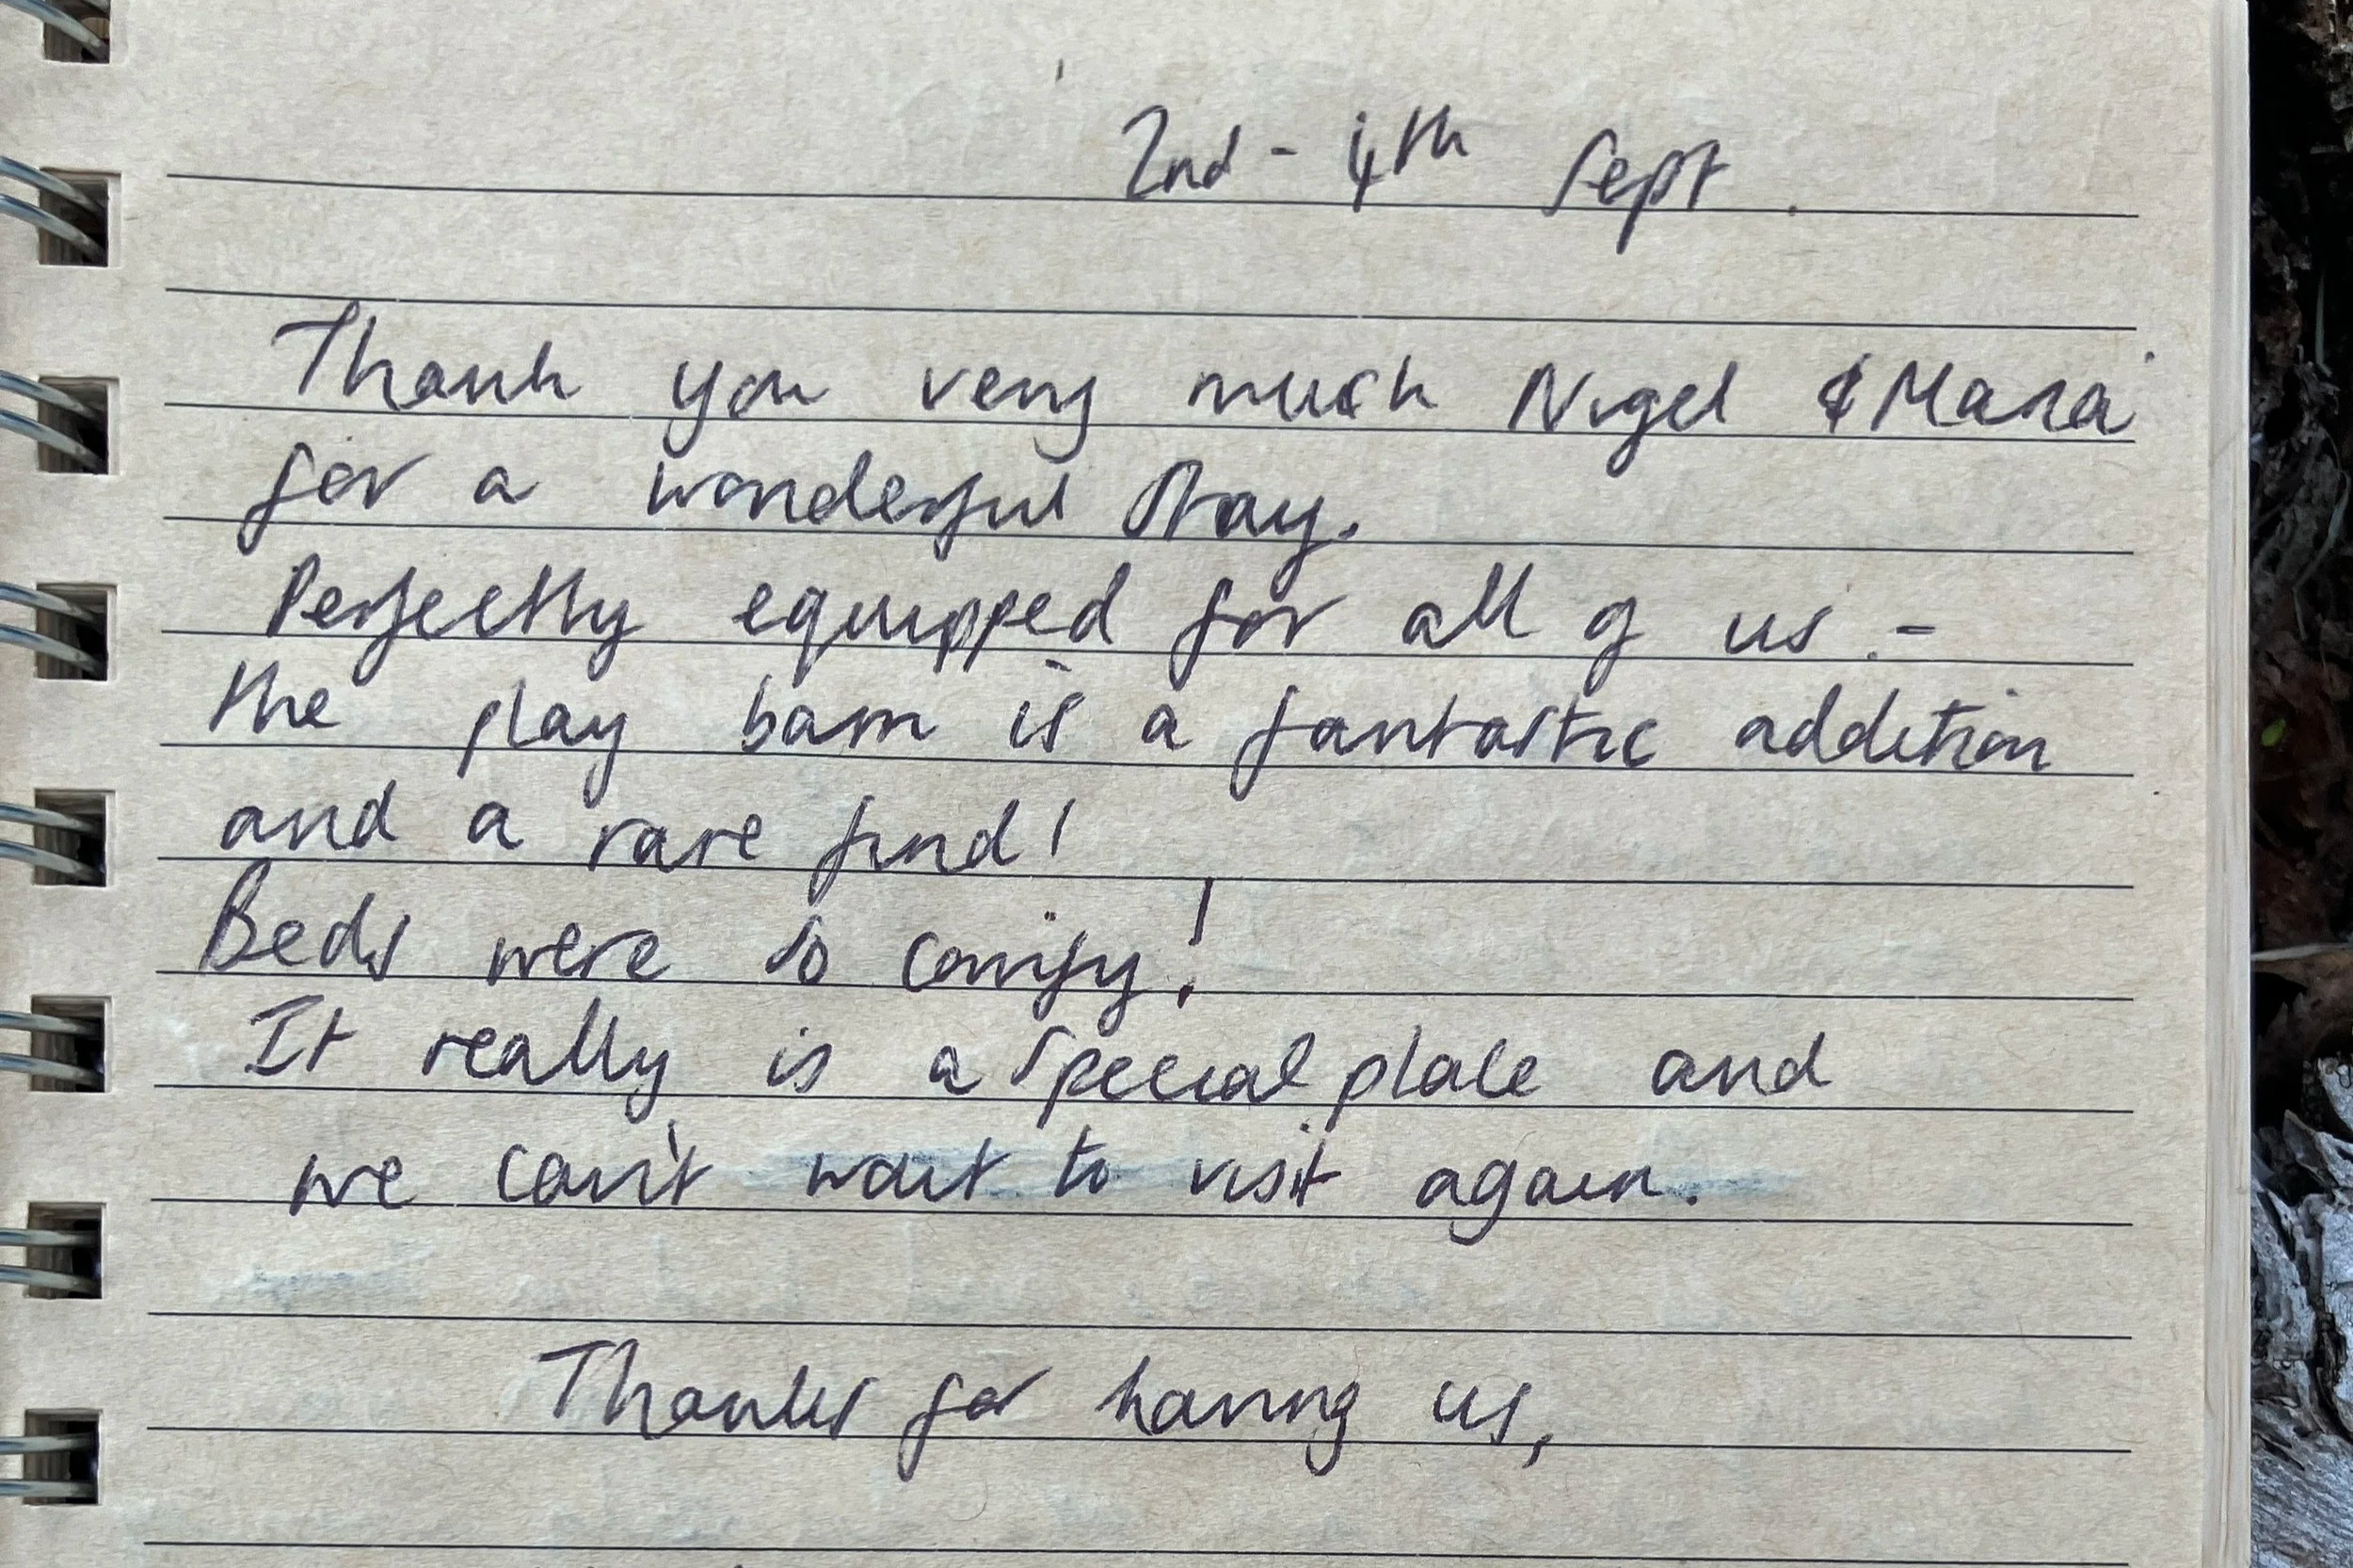 2nd - 4th Sept.
Thank you very much Nigel & Mara
for a wonderful stay.
Perfectly equipped for all of us. -
the play barn is a fantastic addition
and a rare find!
Beds were so comfy!
It really is a special place and
we can't wait to visit again.
Thanks for having us,